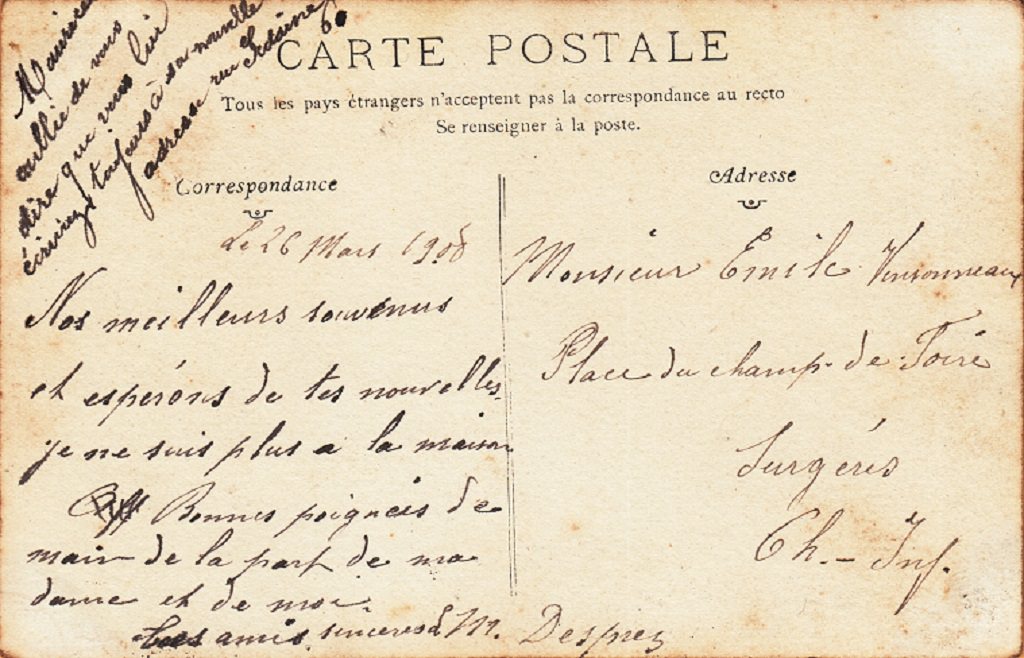 Maurice
oublie de vous
dire que vous lui
écriviez toujours à sa nouvelle
adresse rue 60
CARTE POSTALE
Tous les pays étrangers n'acceptent pas la correspondance au recto
Se renseigner à la poste.
Correspondance
Le 26 Mars 1908
Nos meilleurs souvenirs
et espérons de tes nouvelles
je ne suis plus a la maison
Bonnes poignées de
main de la part de ma
dame et de moi.
amis sincères M. Desprez
Adresse
Monsieur Emile Vinsonneau
Place du champ-de-Foire
Surgérès
Ch.-Inf.